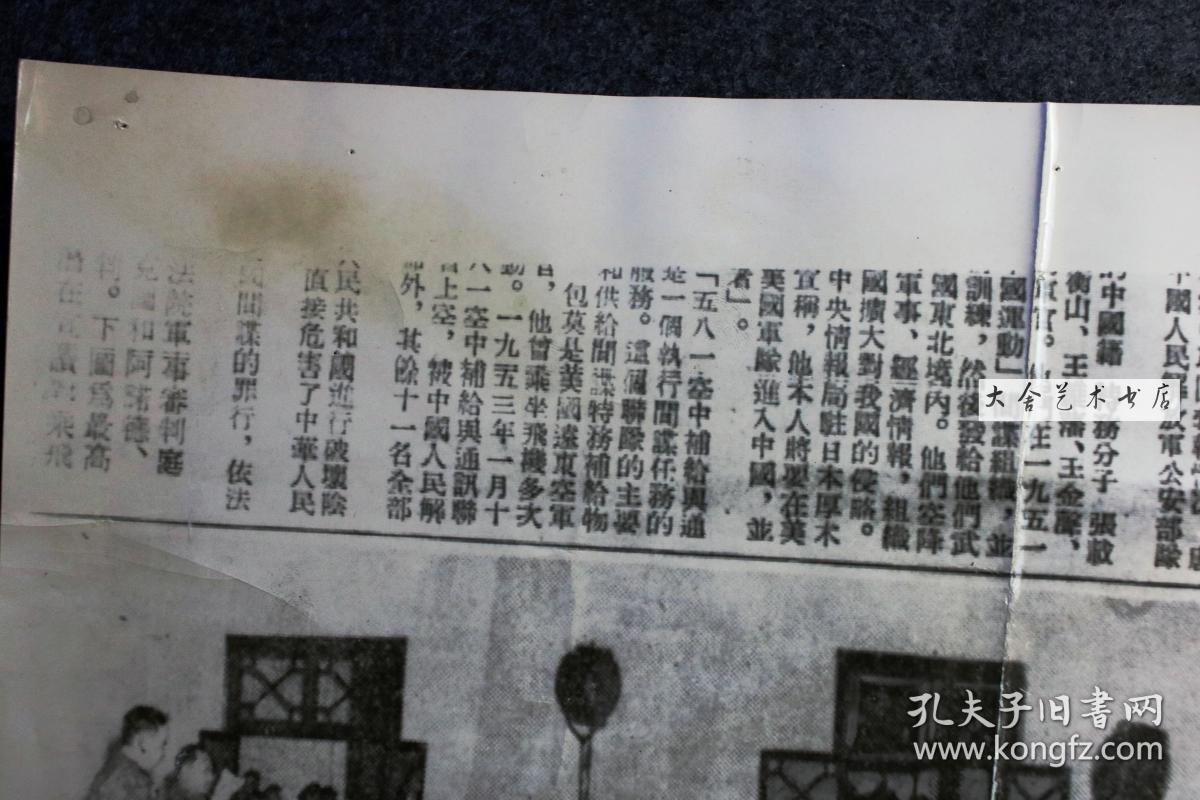 中國人民解放軍公安部隊
的中國籍
務分子 張載
衡山、王
、王金聲，
在一九五一
國運動」
諜組織，並
訓練，然後發給他們武
國東北境內。他們空降
軍事、經濟情報，組織
國擴大對我國的侵略。
中央情報局駐日本厚木
宣稱，他本人將要在美
美國軍隊進入中國，並
者」。
「五八一空中補給與通
是一個執行間諜任務的
服務。這個聯隊的主要
和供給間諜特務補給物
包莫是美國遠東空軍
官，他曾乘坐飛機多次
動。一九五三年一月十
八一空中補給與通訊聯
省上空，被中國人民解
部外，其餘十一名全部
人民共和國進行破壞陰
直接危害了中華人民
民間諜的罪行，依法
法院軍事審判庭
克圖和阿諾德、
判。下圖爲最高
大舍艺术书店
孔夫子旧書网
www.kongfz.com